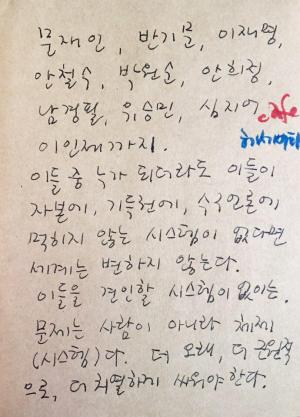 문재인, 반기문, 이재명,
안철수, 박원순, 안희정,
남경필, 유승민, 심지어 cafe
이인제까지.
이들 중 누가 되더라도 이들이
자본에, 기득권에, 수구언론에
먹히지 않는 시스템이 없다면
세계는 변하지 않는다.
이들을 견인할 시스템이 없이는.
문제는 사람이 아니라 체제
(시스템)다. 더 오래, 더 근원적
으로, 더 치열하게 싸워야 한다.